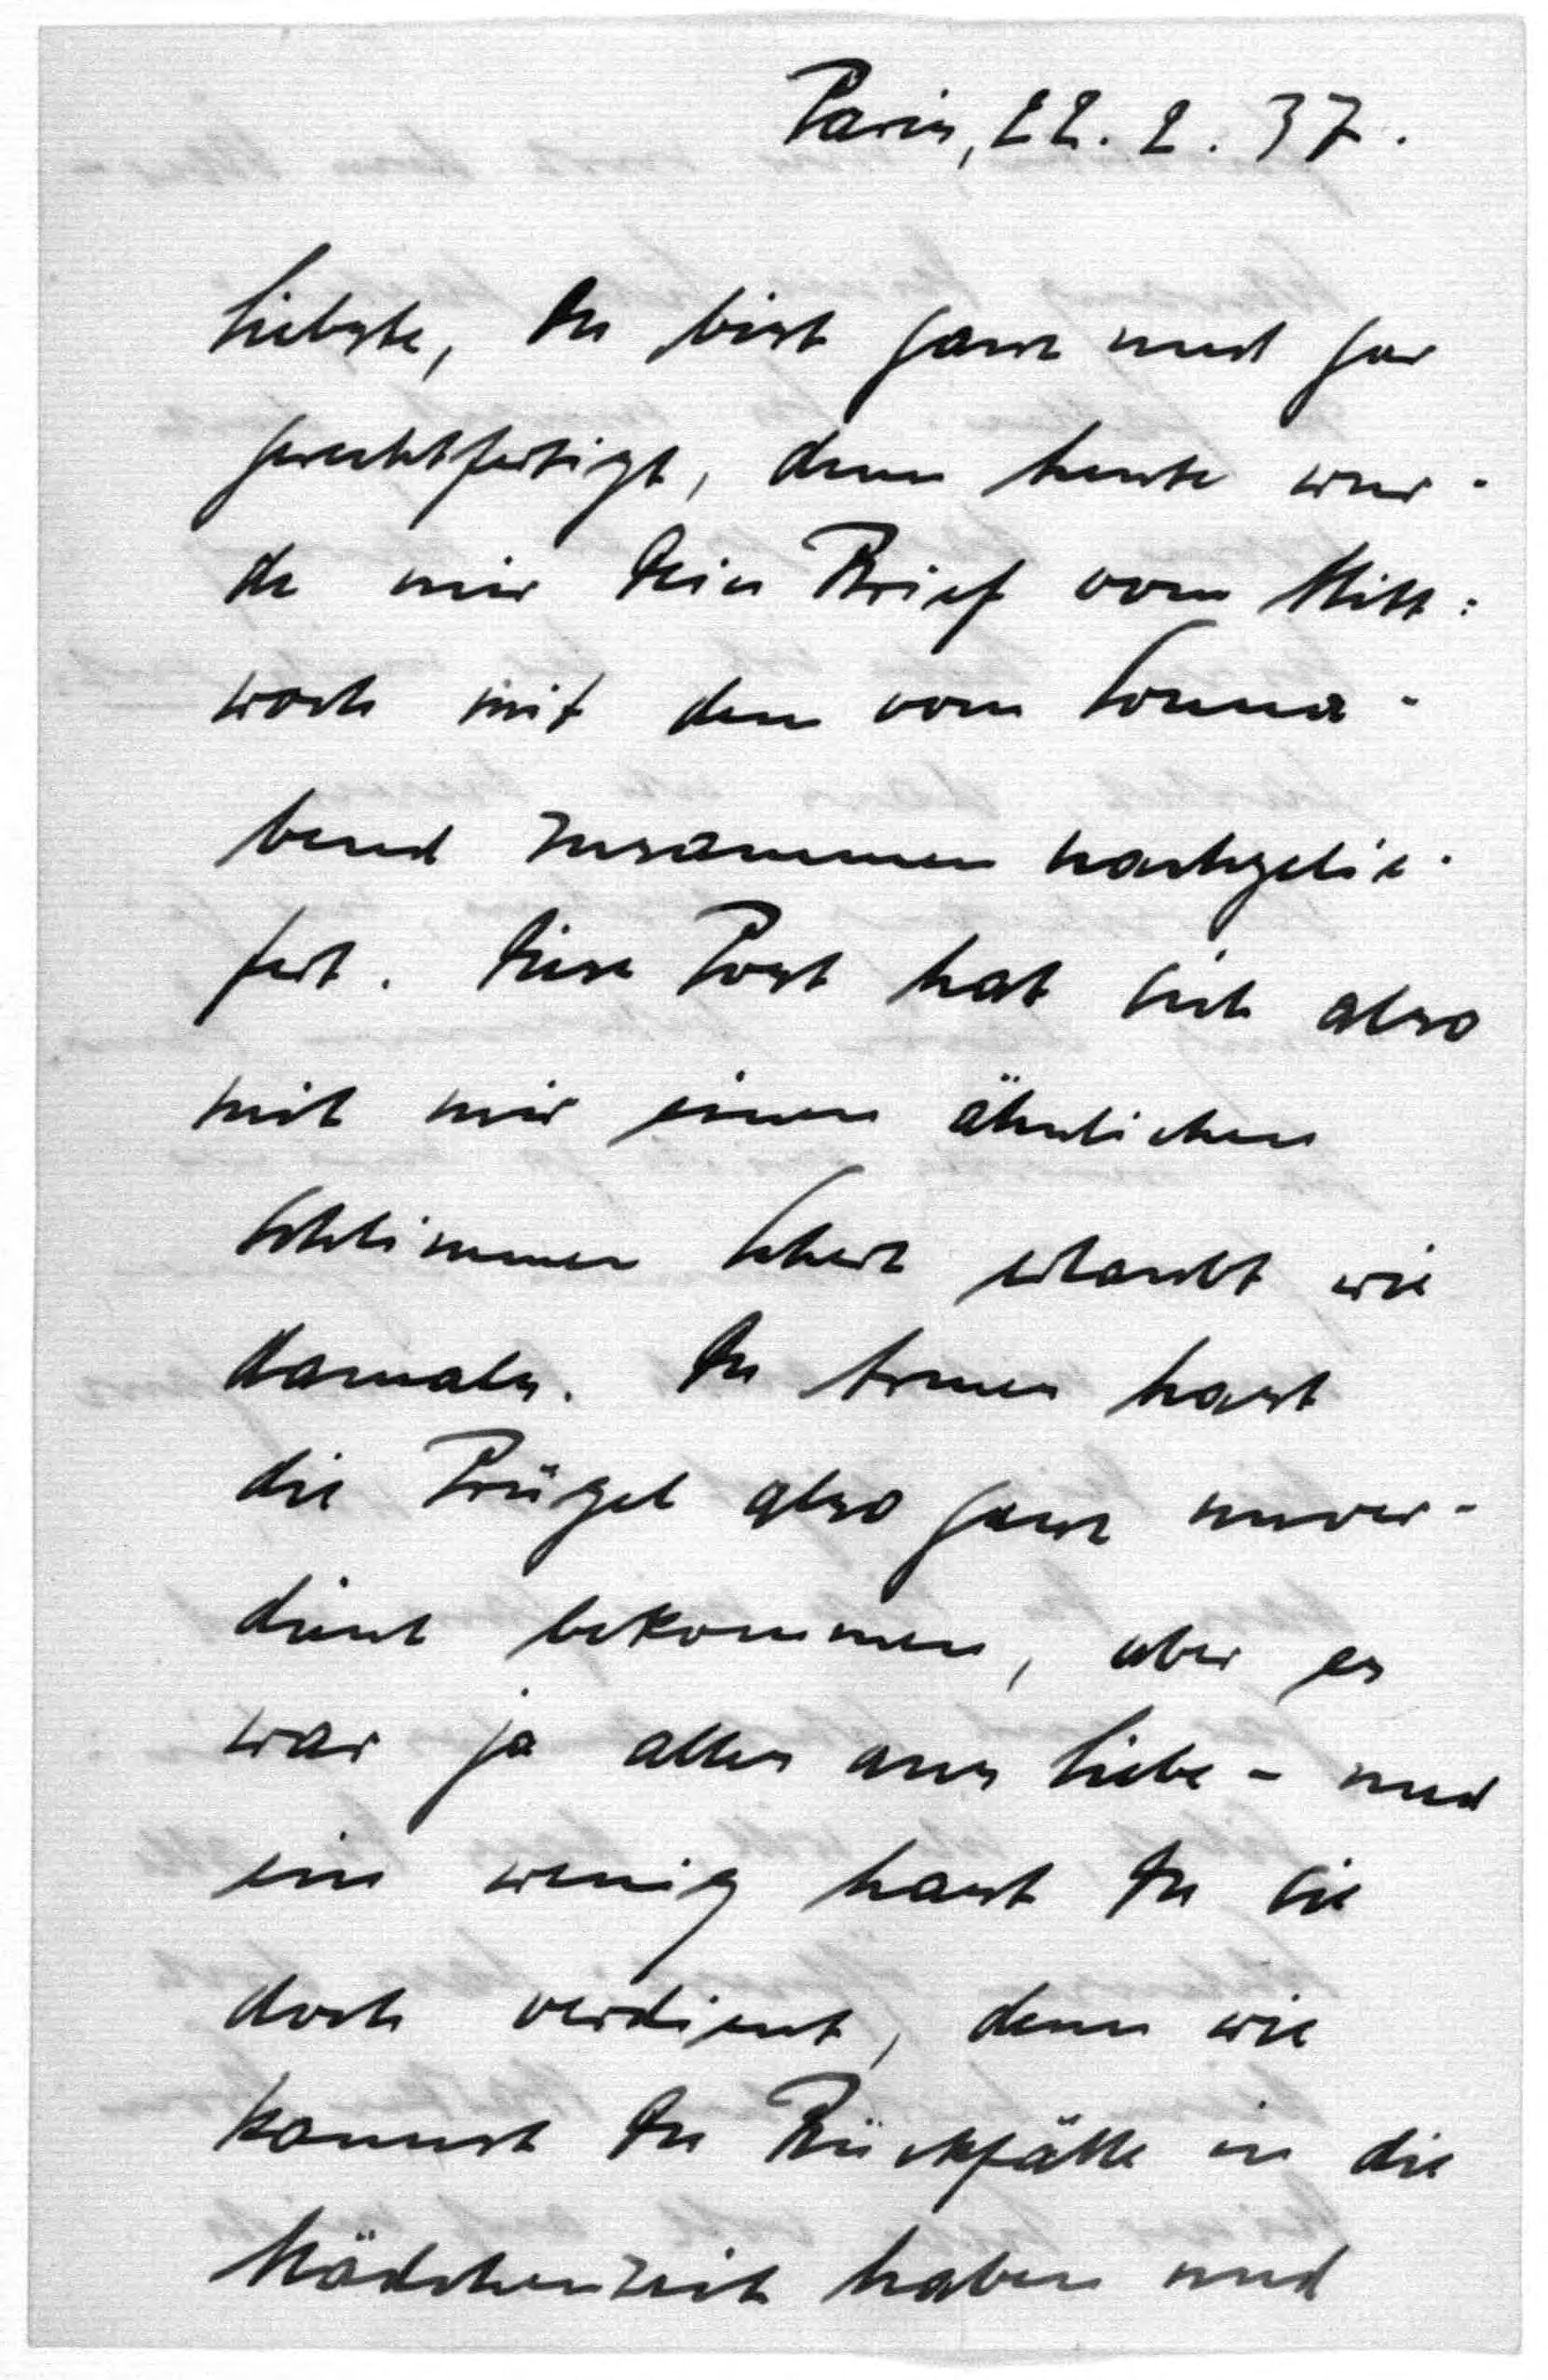 Paris, 22. 2. 37.
Liebste, Du bist ganz und gar
gerechtfertigt, denn heute wur-
de mir Dein Brief vom Mitt-
woch mit dem vom Sonna-
bend zusammen nachgelie-
fert. Diese Post hat sich also
mit mir einen ähnlichen
schlimmen Scherz erlaubt wie
damals. Du Armes hast
die Prügel also ganz unver-
dient bekommen, aber es
war ja alles aus Liebe – und
ein wenig hast Du sie
doch verdient, denn wie
kannst Du Rückfälle in die
Mädchenzeit haben und